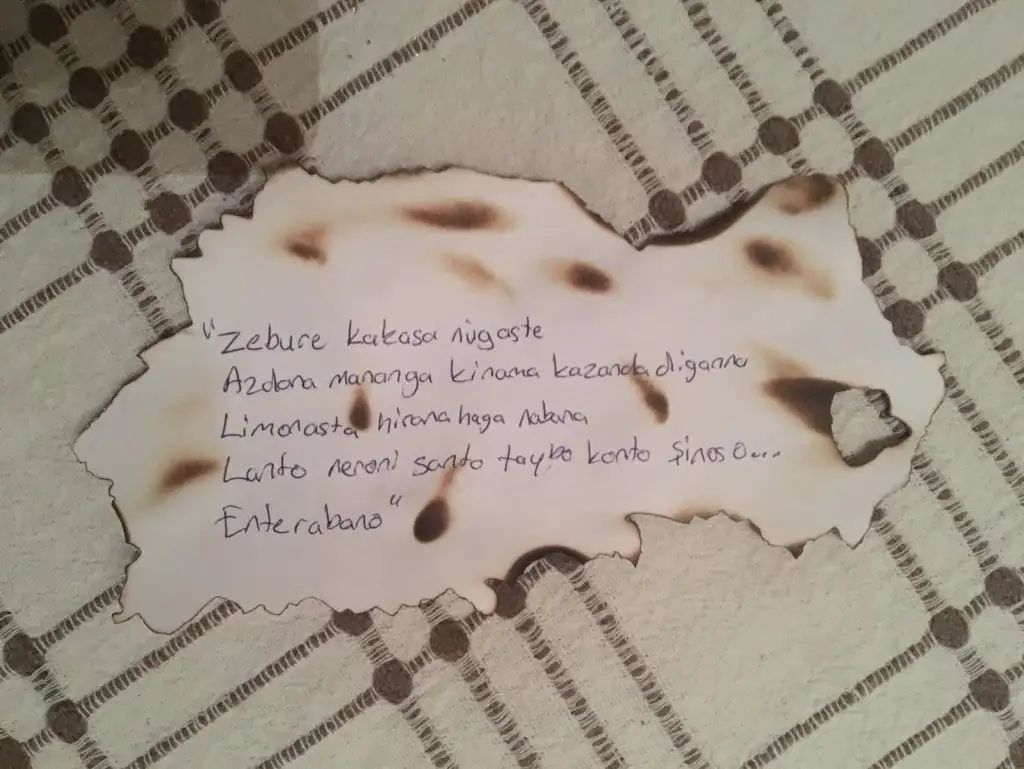 "Zebure kakasa nügaste
Azdana mananga kinama kazanda diganna
Limonasta hirana haga nabana
Lanto neroni santo taybo konto Şinos o...
Enterabano"